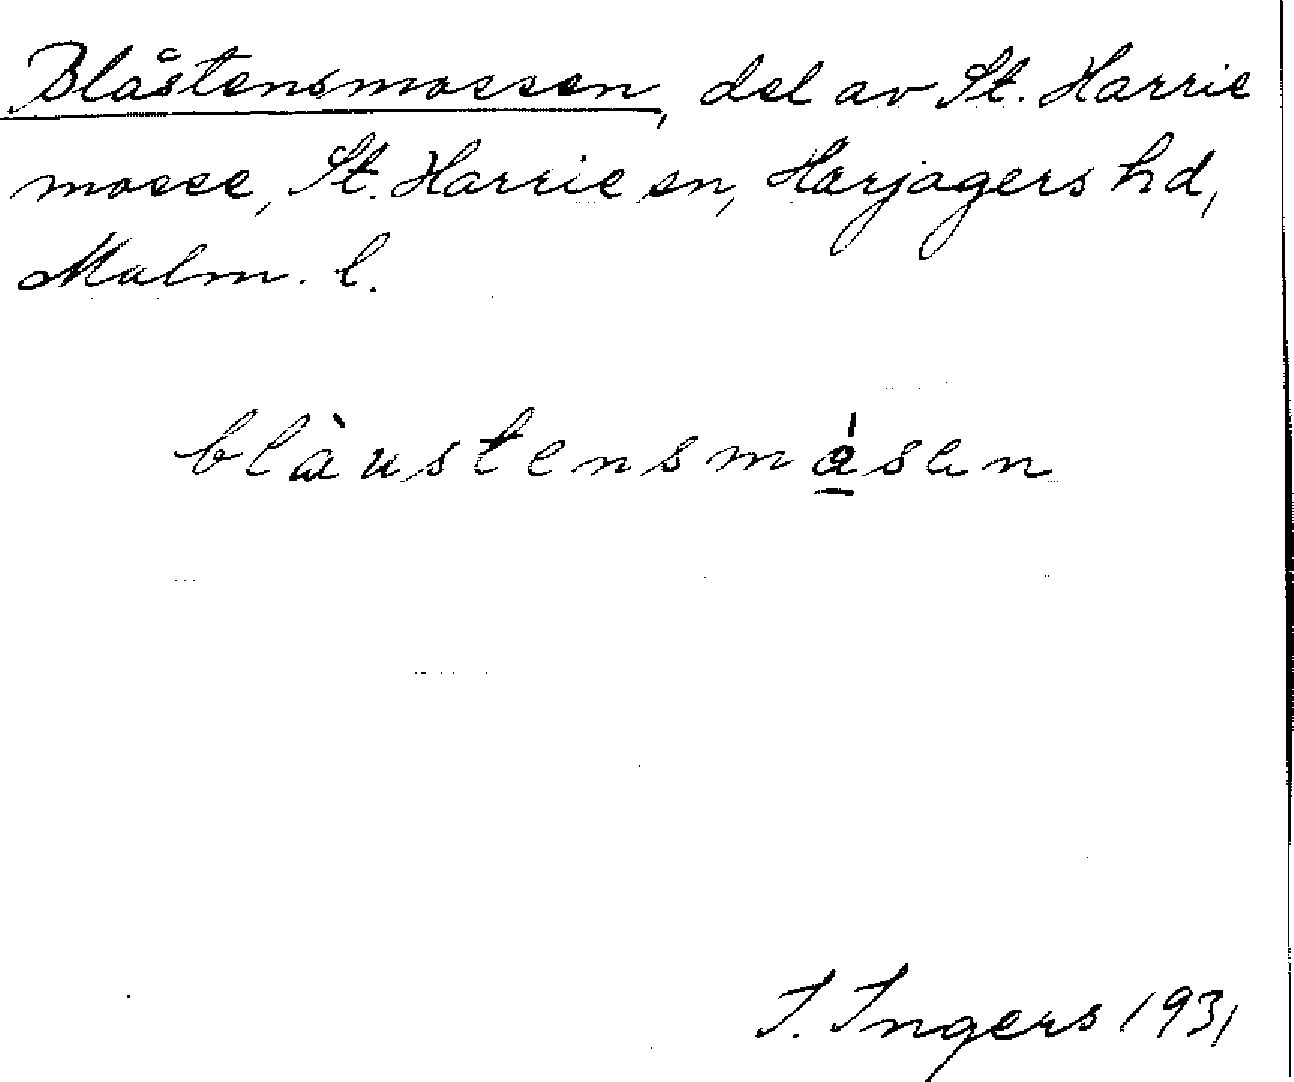 Blåstensmossen, del av St. Harrie
mosse, St. Harrie sn, Harjagers hd,
Malm. l.
blàustensmá̱sen
I. Ingers 1931